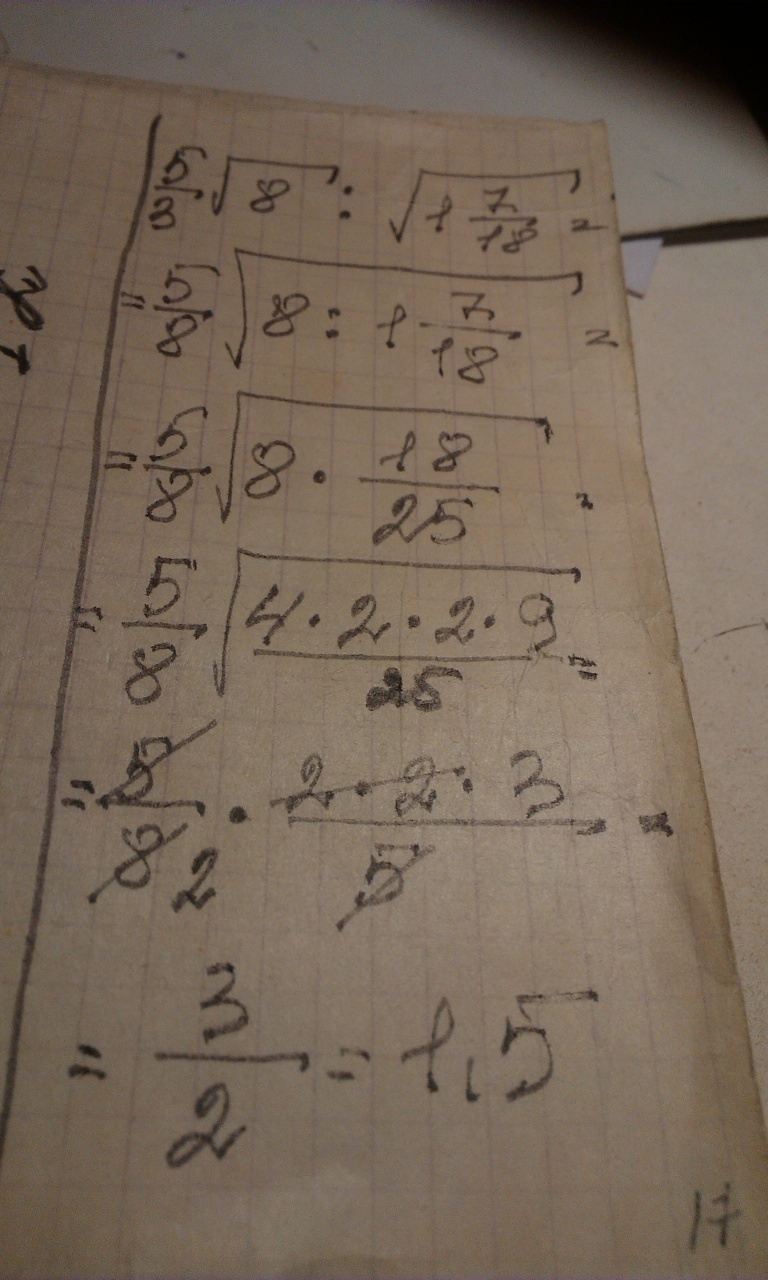 5/8 √8 : √(1 7/18) =
= 5/8 √(8 : 1 7/18) =
= 5/8 √(8 · 18/25) =
= 5/8 √((4 · 2 · 2 · 9)/25) =
= 5/8 2 · (2 · 2 · 3)/5 =
= 3/2 = 1,5
17